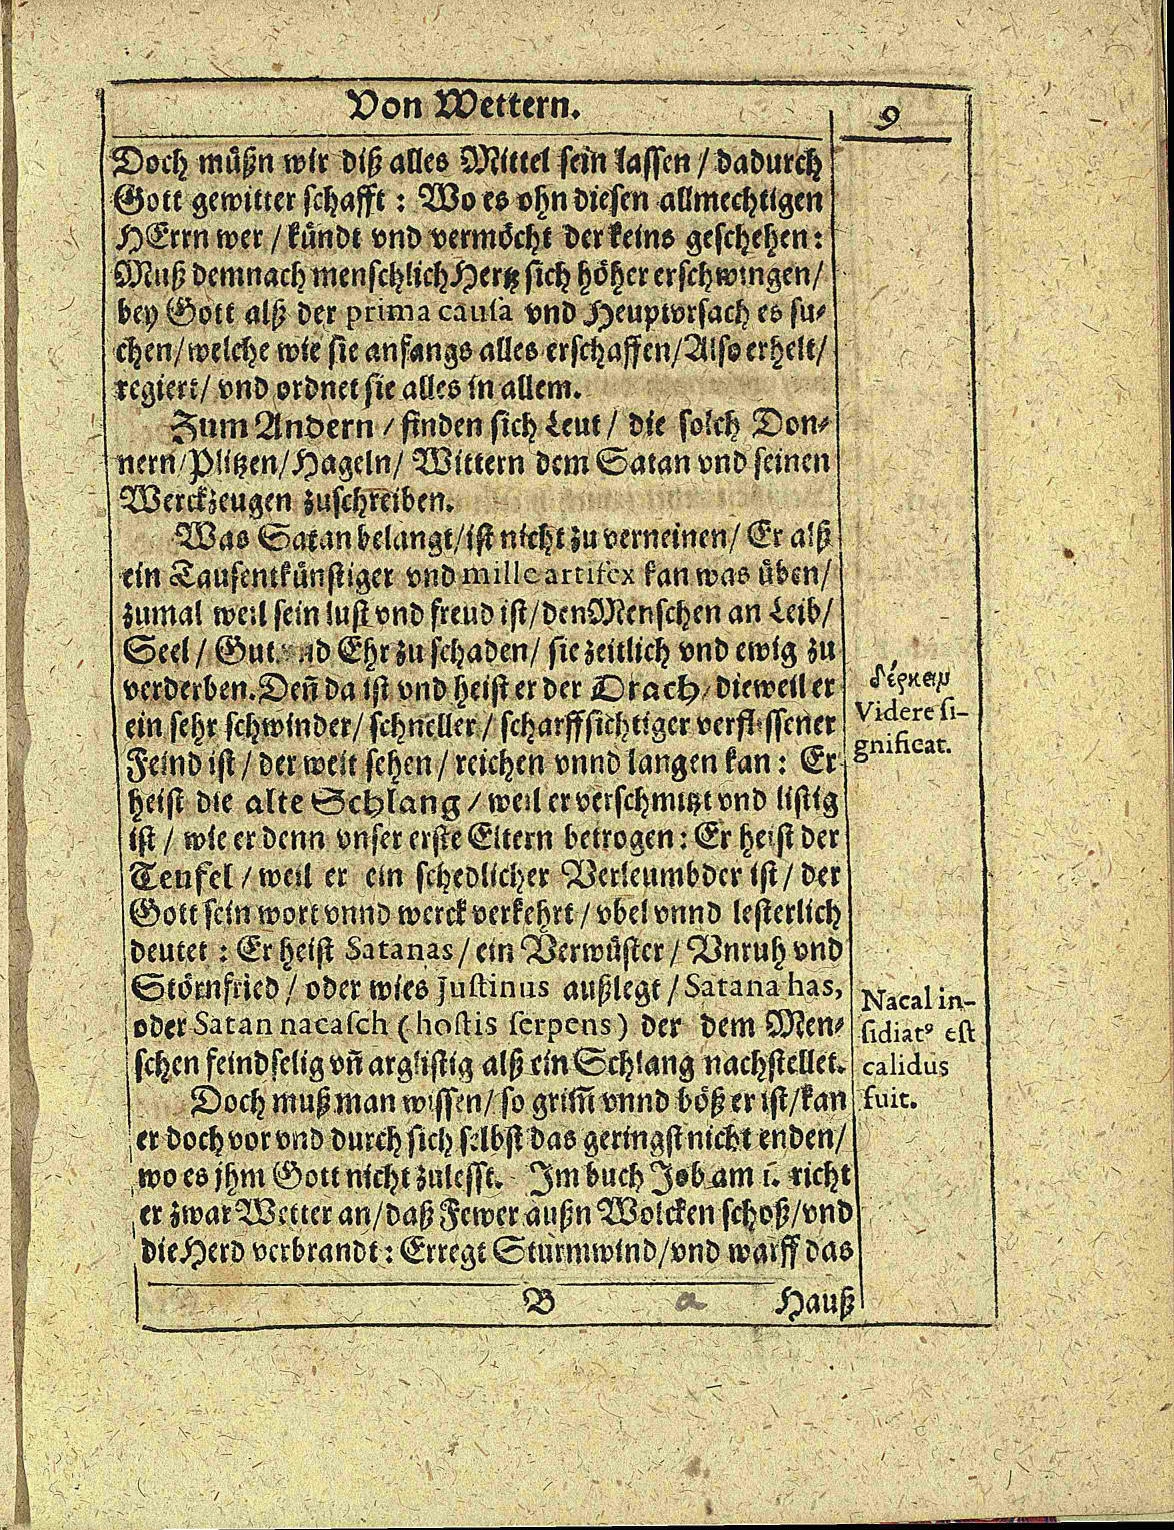 Von Wettern.
9
Doch müßn wir diß alles Mittel sein lassen / dadurch
Gott gewitter schafft : Wo es ohn diesen allmechtigen
HErrn wer / kündt vnd vermöcht der keins geschehen:
Muß demnach menschlich Hertz sich höher erschwingen/
bey Gott alß der prima causà vnd Heuptvrsach es su-
chen/welche wie sie anfangs alles erschaffen/Also erhelt/
regiert/ vnd ordnet sie alles in allem.
Zum Andern / finden sich Leut / die solch Don-
nern/Plitzen/Hageln/ Wittern dem Satan vnd seinen
Werckzeugen zuschreiben.
Was Satan belangt/ist nicht zu verneinen/ Er alß
ein Tausentkünstiger vnd mille artifex kan was üben/
zumal weil sein lust vnd freud ist/den Menschen an Leib/
Seel / Gut vnd Ehr zu schaden/ sie zeitlich vnd ewig zu
verderben. Deñ da ist vnd heist er der Drach/ dieweil er
ein sehr schwinder/ schneller/ scharffsichtiger verflissener
Feind ist / der weit sehen / reichen vnnd langen kan : Er
heist die alte Schlang / weil er verschmitzt vnd listig
ist / wie er denn vnser erste Eltern betrogen : Er heist der
Teufel / weil er ein schedlicher Verleumbder ist / der
Gott sein wort vnnd werck verkehrt / vbel vnnd lesterlich
deutet : Er heist Satanas / ein Verwüster / Vnruh vnd
Störnfried / oder wies Justinus außlegt / Satana has,
oder Satan nacasch (hostis serpens) der dem Men-
schen feindselig vñ arglistig alß ein Schlang nachstellet.
Doch muß man wissen/ so grim̃ vnnd böß er ist/kan
er doch vor vnd durch sich selbst das geringst nicht enden/
wo es jhm Gott nicht zulesst. Im buch Job am 1. richt
er zwar Wetter an/daß Fewer außn Wolcken schoß/vnd
die Herd verbrandt : Erregt Sturmwind/vnd warff das
B
a
Hauß
δέρκειν
Videre si-
gnificat.
Nacal in-
sidiatꝰ est
calidus
fuit.